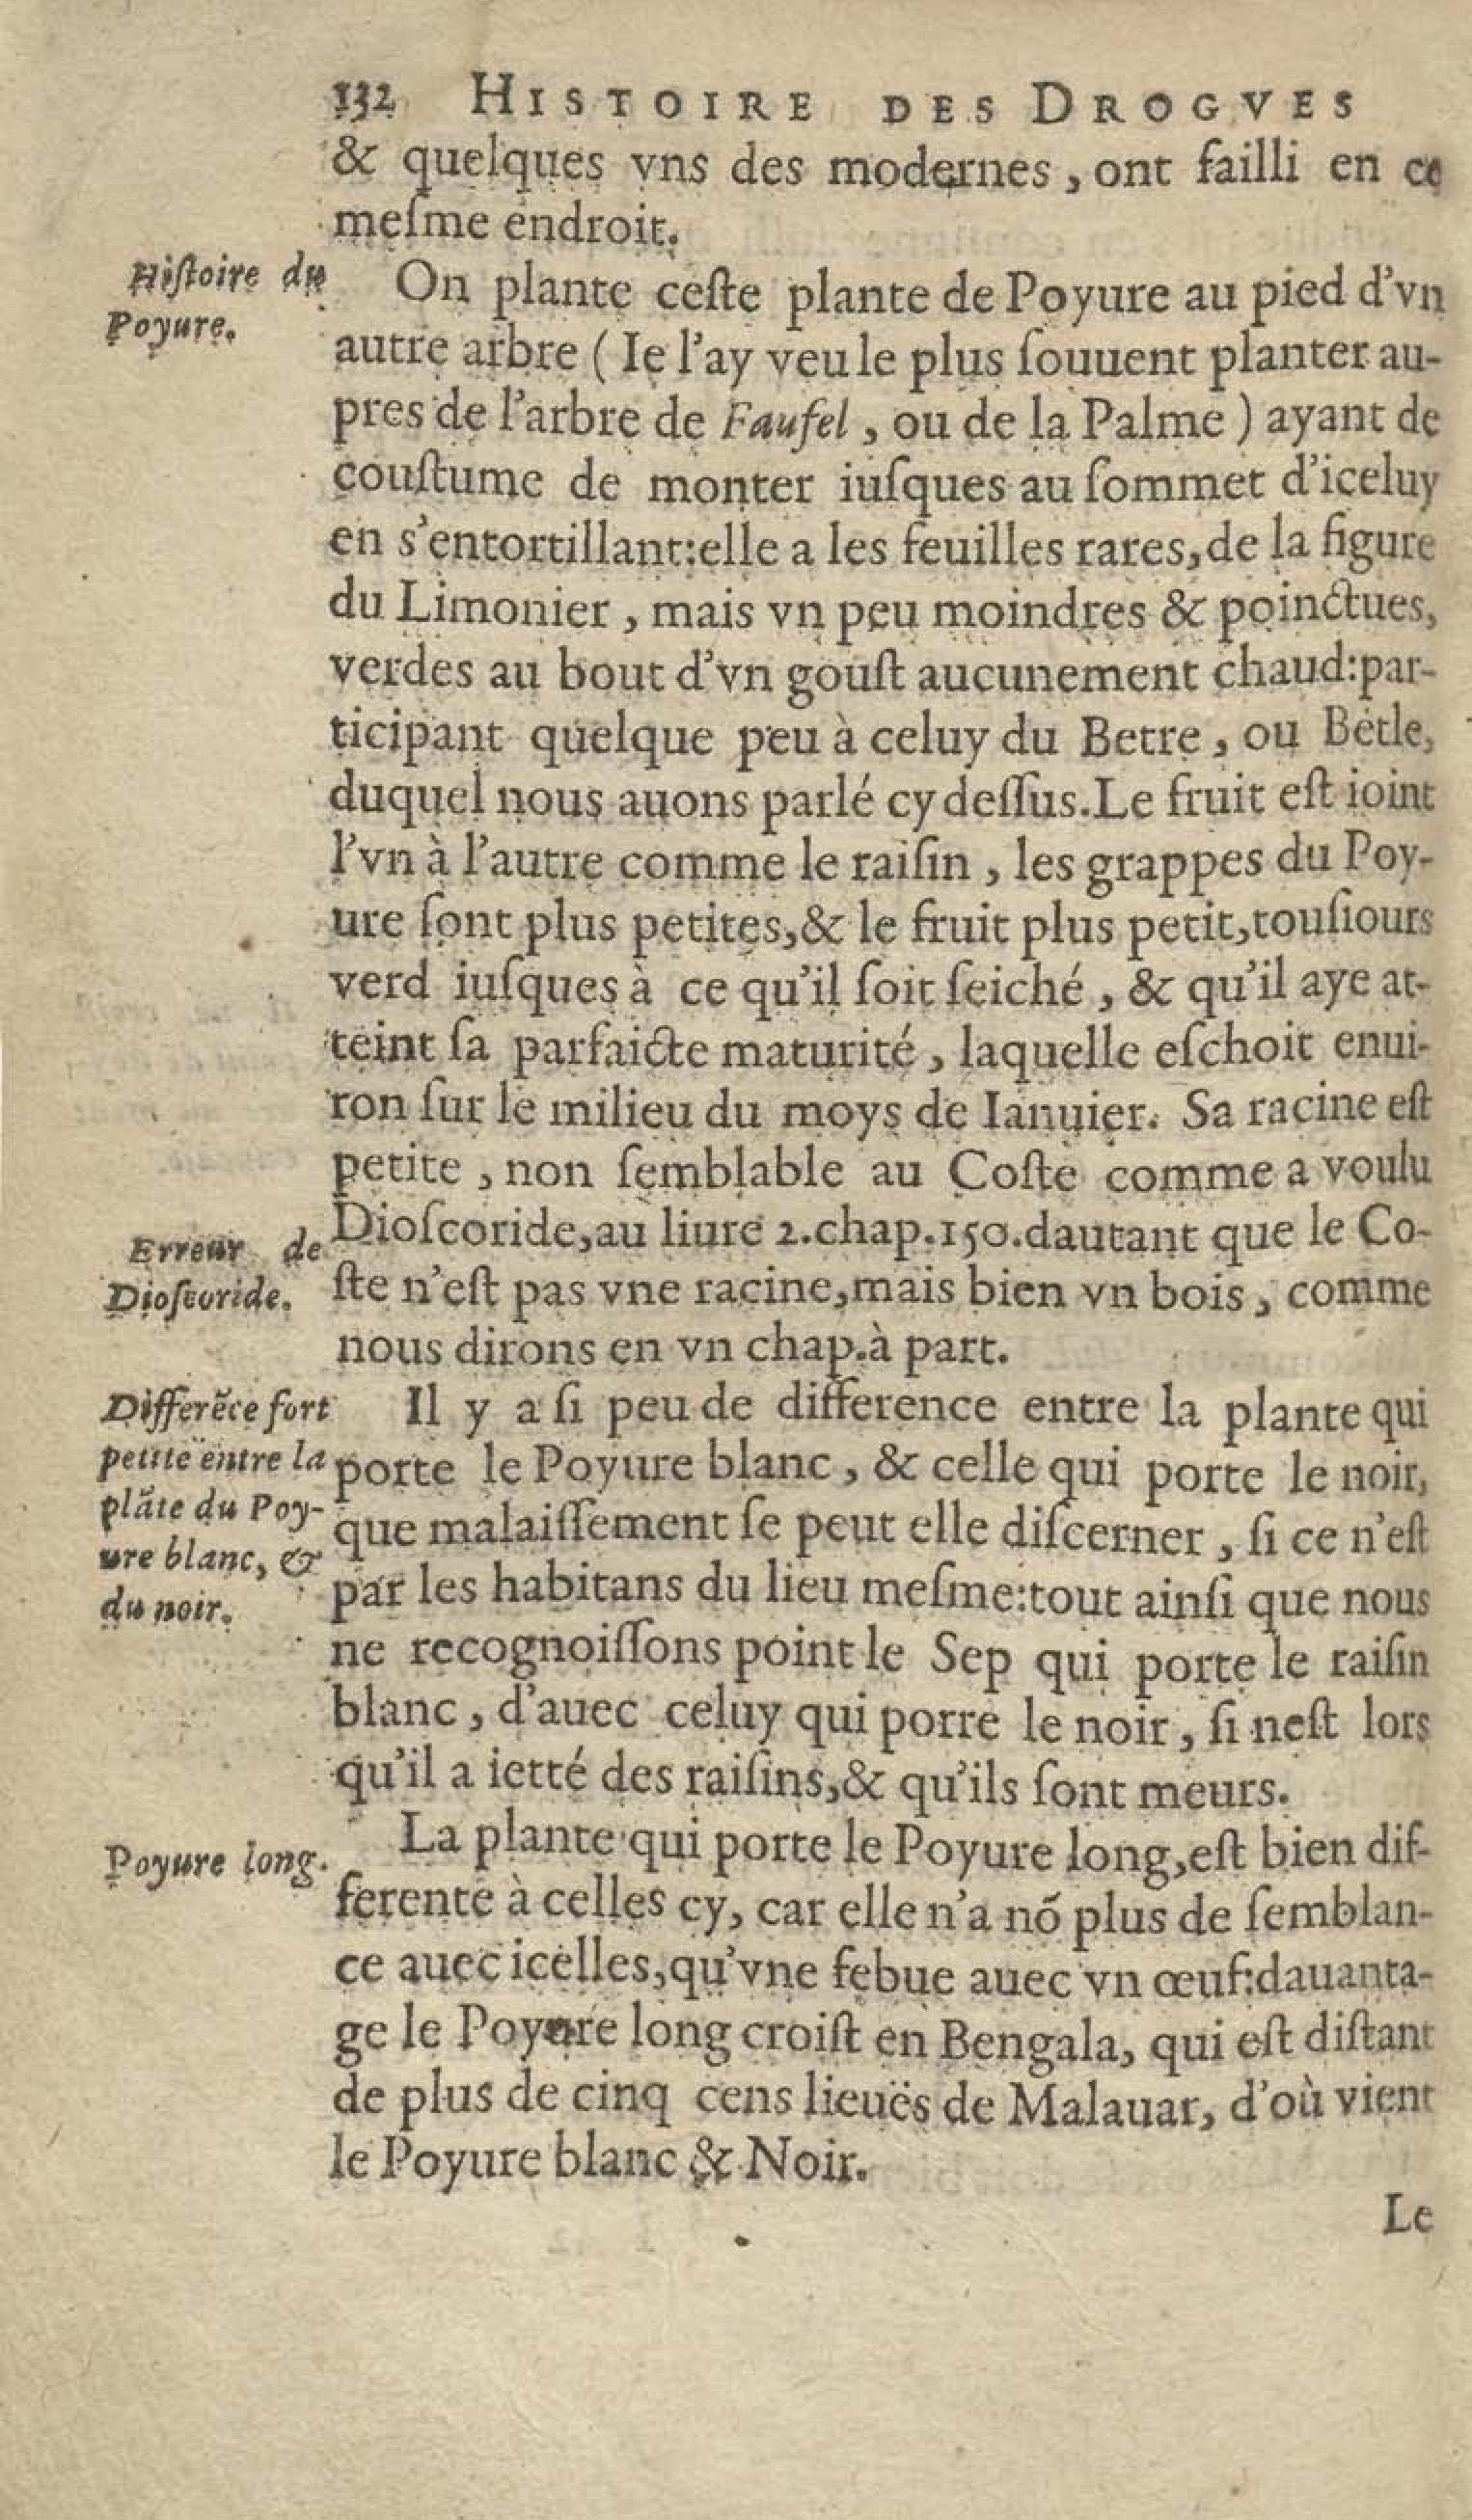 132 HISTOIRE DES DROGVES
& quelques vns des modernes, ont failli en ce
meſme endroit.
Hiſtoire du
Poyure.
On plante ceſte plante de Poyure au pied d'vn
autre arbre ( Ie l'ay veu le plus ſouuent planter au-
pres de l'arbre de Faufel, ou de la Palme ) ayant de
couſtume de monter iuſques au ſommet d'iceluy
en s'entortillant:elle a les feuilles rares,de la figure
du Limonier, mais vn peu moindres & poinctues,
verdes au bout d'vn gouſt aucunement chaud:par-
ticipant quelque peu à celuy du Betre, ou Betle,
duquel nous auons parlé cy deſſus.Le fruit eſt ioint
l'vn à l'autre comme le raiſin, les grappes du Poy-
ure ſont plus petites,& le fruit plus petit,touſiours
verd iuſques à ce qu'il ſoit ſeiché, & qu'il aye at-
teint ſa parfaicte maturité, laquelle eſchoit enui-
ron ſur le milieu du moys de Ianuier. Sa racine eſt
petite, non ſemblable au Coſte comme a voulu
Erreur de
Dioſcoride.
Dioſcoride,au liure 2.chap.150.dautant que le Co-
ſte n'eſt pas vne racine,mais bien vn bois, comme
nous dirons en vn chap.à part.
Differẽce fort
petite entre la
plãte du Poy-
ure blanc, &
du noir.
Il y a ſi peu de difference entre la plante qui
porte le Poyure blanc, & celle qui porte le noir,
que malaiſſement ſe peut elle diſcerner, ſi ce n'eſt
par les habitans du lieu meſme:tout ainſi que nous
ne recognoiſſons point le Sep qui porte le raiſin
blanc, d'auec celuy qui porre le noir, ſi neſt lors
qu'il a ietté des raiſins,& qu'ils ſont meurs.
Poyure long.
La plante qui porte le Poyure long,eſt bien dif-
ferente à celles cy, car elle n'a nõ plus de ſemblan-
ce auec icelles,qu'vne febue auec vn œuf:dauanta-
ge le Poyure long croiſt en Bengala, qui eſt diſtant
de plus de cinq cens lieuës de Malauar, d'où vient
le Poyure blanc & Noir.
Le